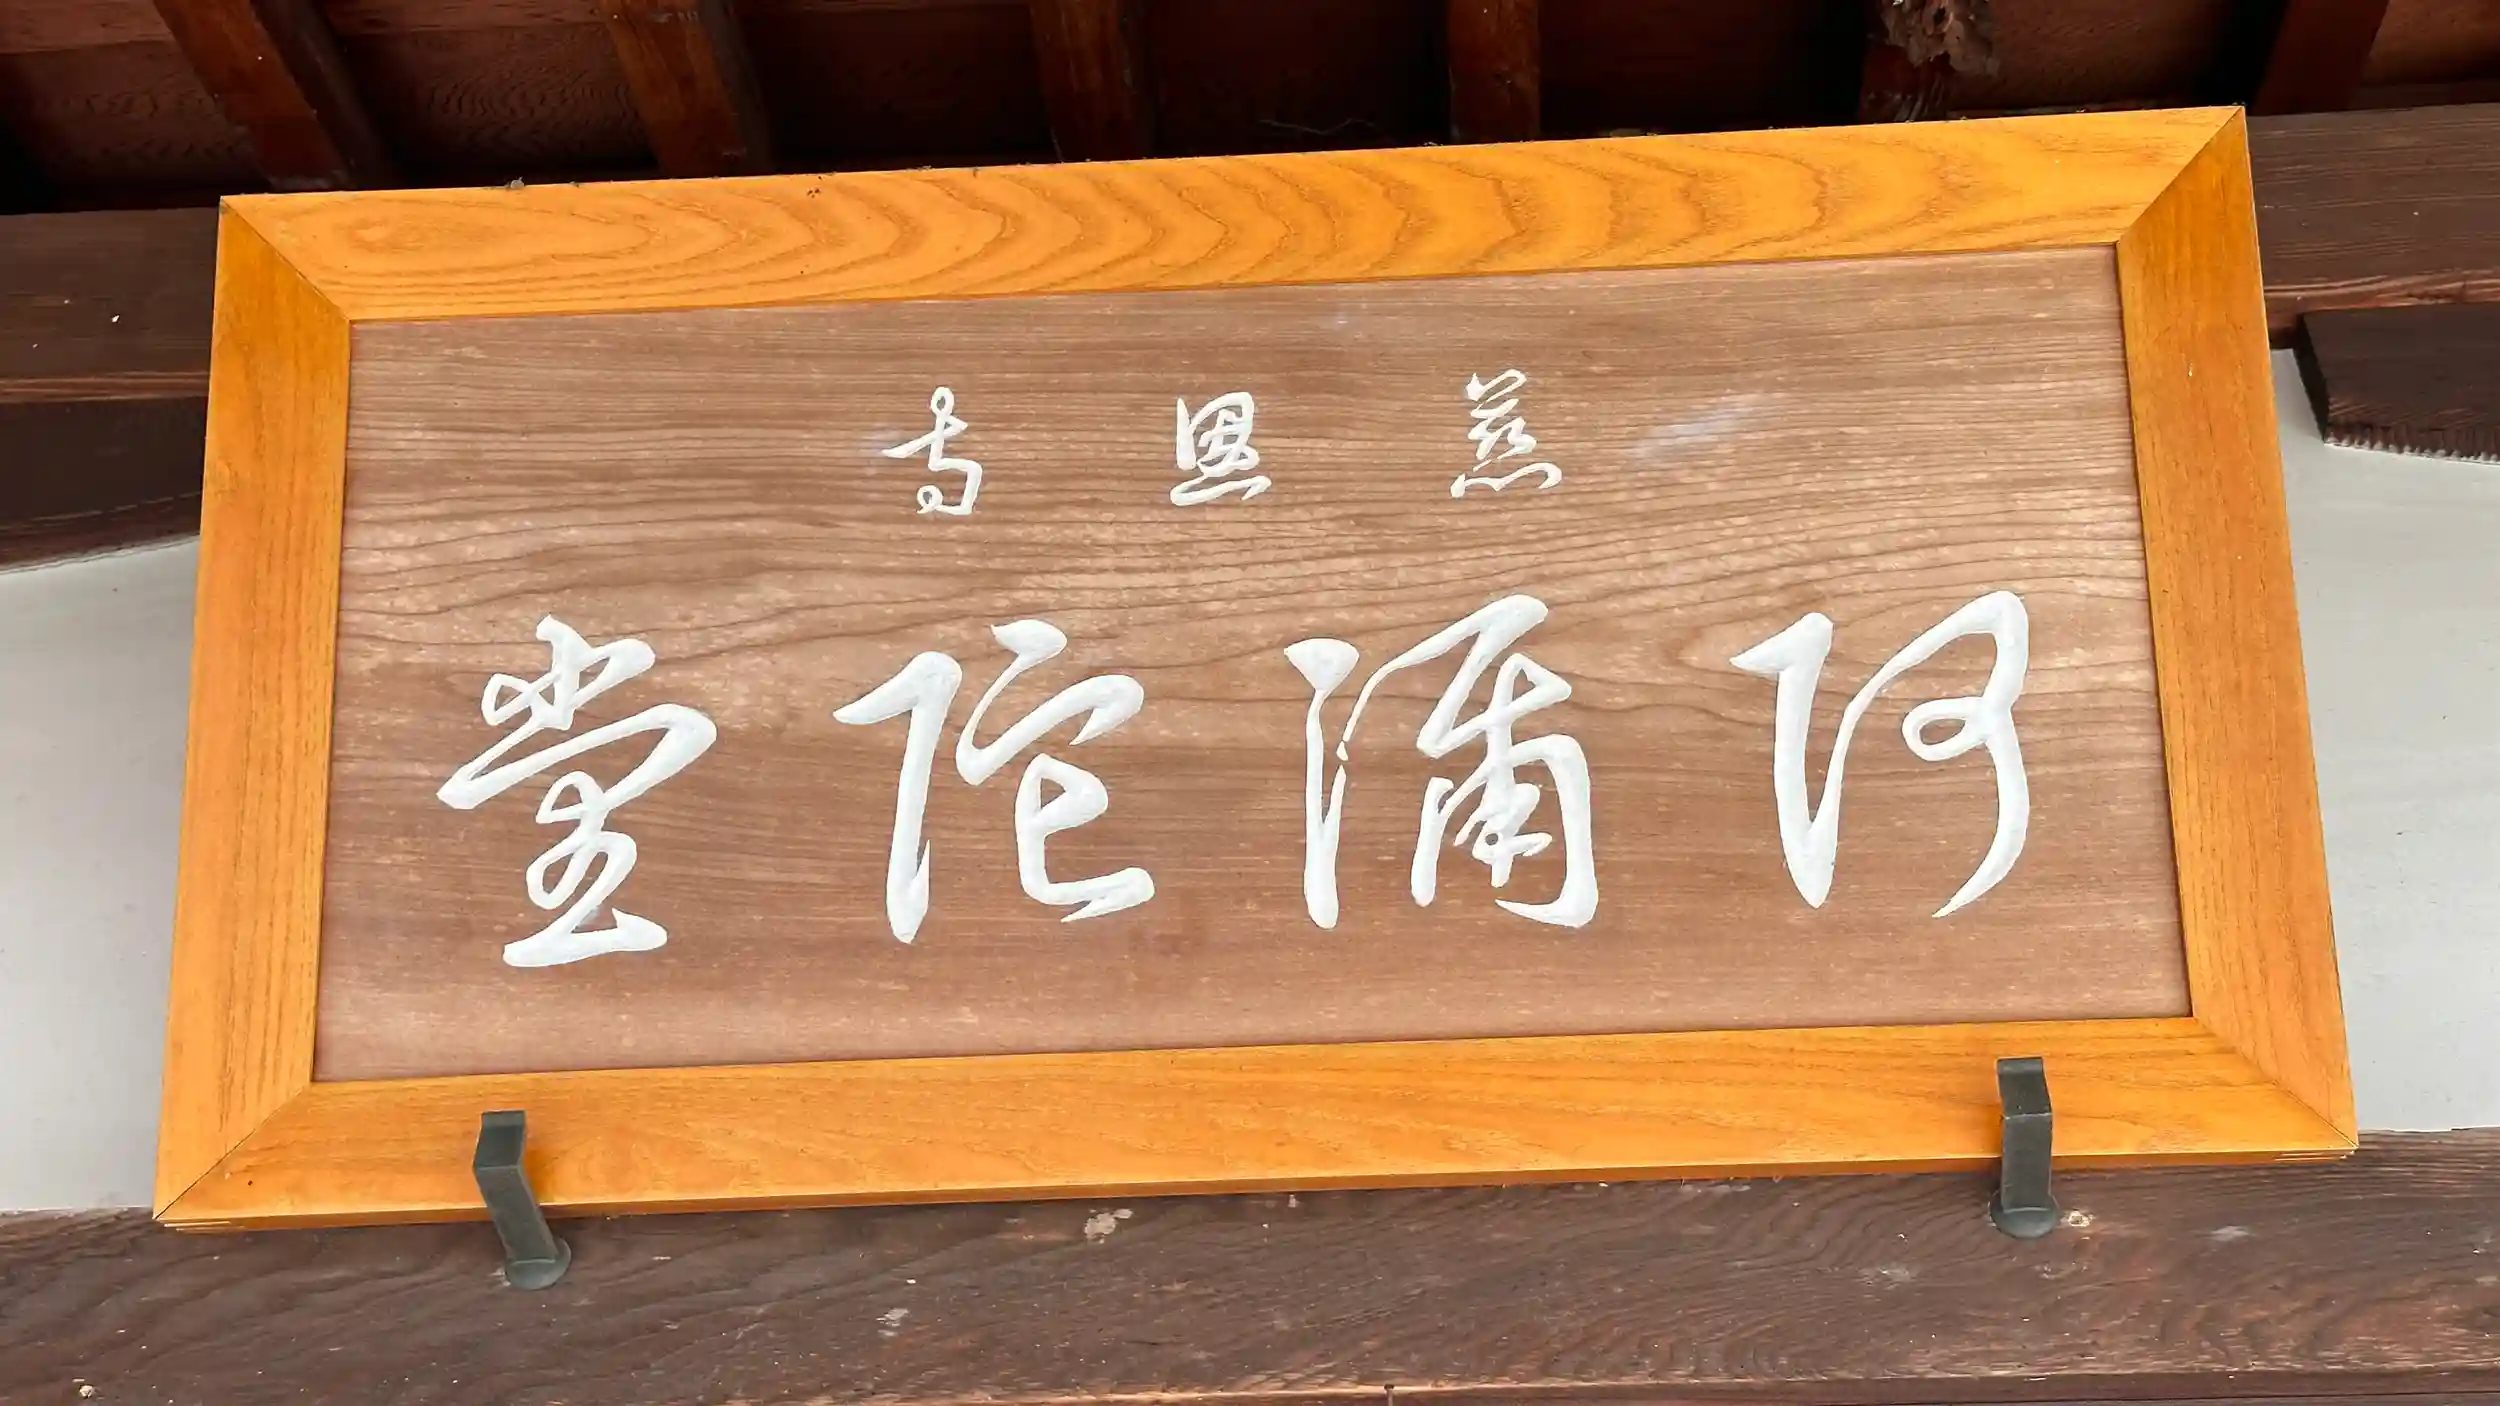 慈恩寺
阿彌陀堂